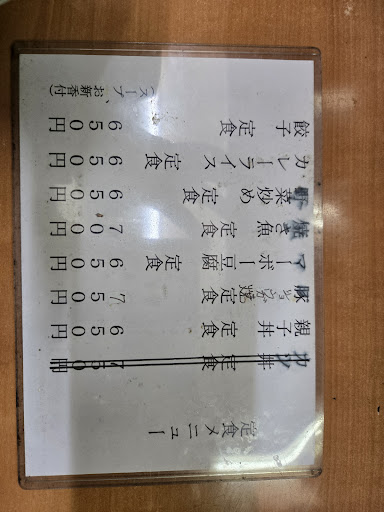 定食メニュー
丼 定食
親子丼 定食 650円
豚しょうが焼定食 750円
マーボー豆腐 定食 650円
焼き魚 定食 700円
野菜炒め 定食 650円
カレーライス 定食 650円
餃子 定食 650円
(スープ、お新香付)